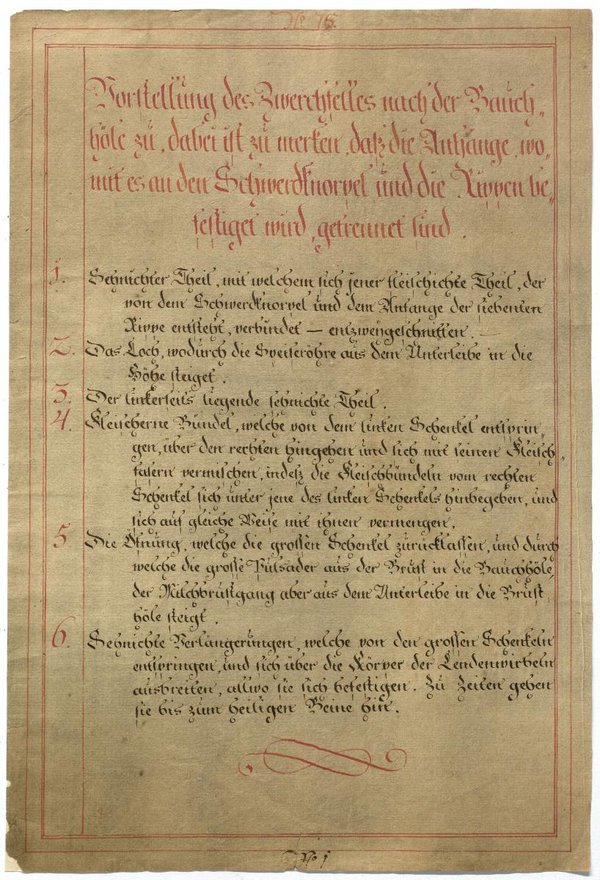 No 76.
Vorstellung des Zwerchfelles nach der Bauch„
höle zu, dabei ist zu merken, daß die Anhänge, wo„
mit es an den Schwerdknorpel und die Rippen be„
festiget wird, getrennet sind.
1. Sehnichter Theil, mit welchem sich jener fleischichte Theil, der
von dem Schwerdknorpel und dem Anfange der siebenten
Rippe entsteht, verbindet — entzweygeschnitten.
2. Das Loch, wodurch die Speiseröhre aus dem Unterleibe in die
Höhe steiget.
3. Der linkerseits liegende sehnichte Theil.
4. Fleischerne Bündel, welche von dem linken Schenkel entsprin„
gen, über den rechten hingehen und sich mit seinen Fleisch„
fasern vermischen, indeß die Fleischbündeln vom rechten
Schenkel sich unter jene des linken Schenkels hinbegeben, und
sich auf gleiche Weise mit ihnen vermengen.
5. Die Öfnung, welche die grossen Schenkel zurücklassen, und durch
welche die grosse Pulsader aus der Brust in die Bauchhöle,
der Milchbrustgang aber aus dem Unterleibe in die Brust„
höle steigt.
6. Sehnichte Verlängerungen, welche von den grossen Schenkeln
entspringen, und sich über die Körper der Lendenwirbeln
ausbreiten, allwo sie sich befestigen. Zu Zeiten gehen
sie bis zum heiligen Beine hin.
No 1